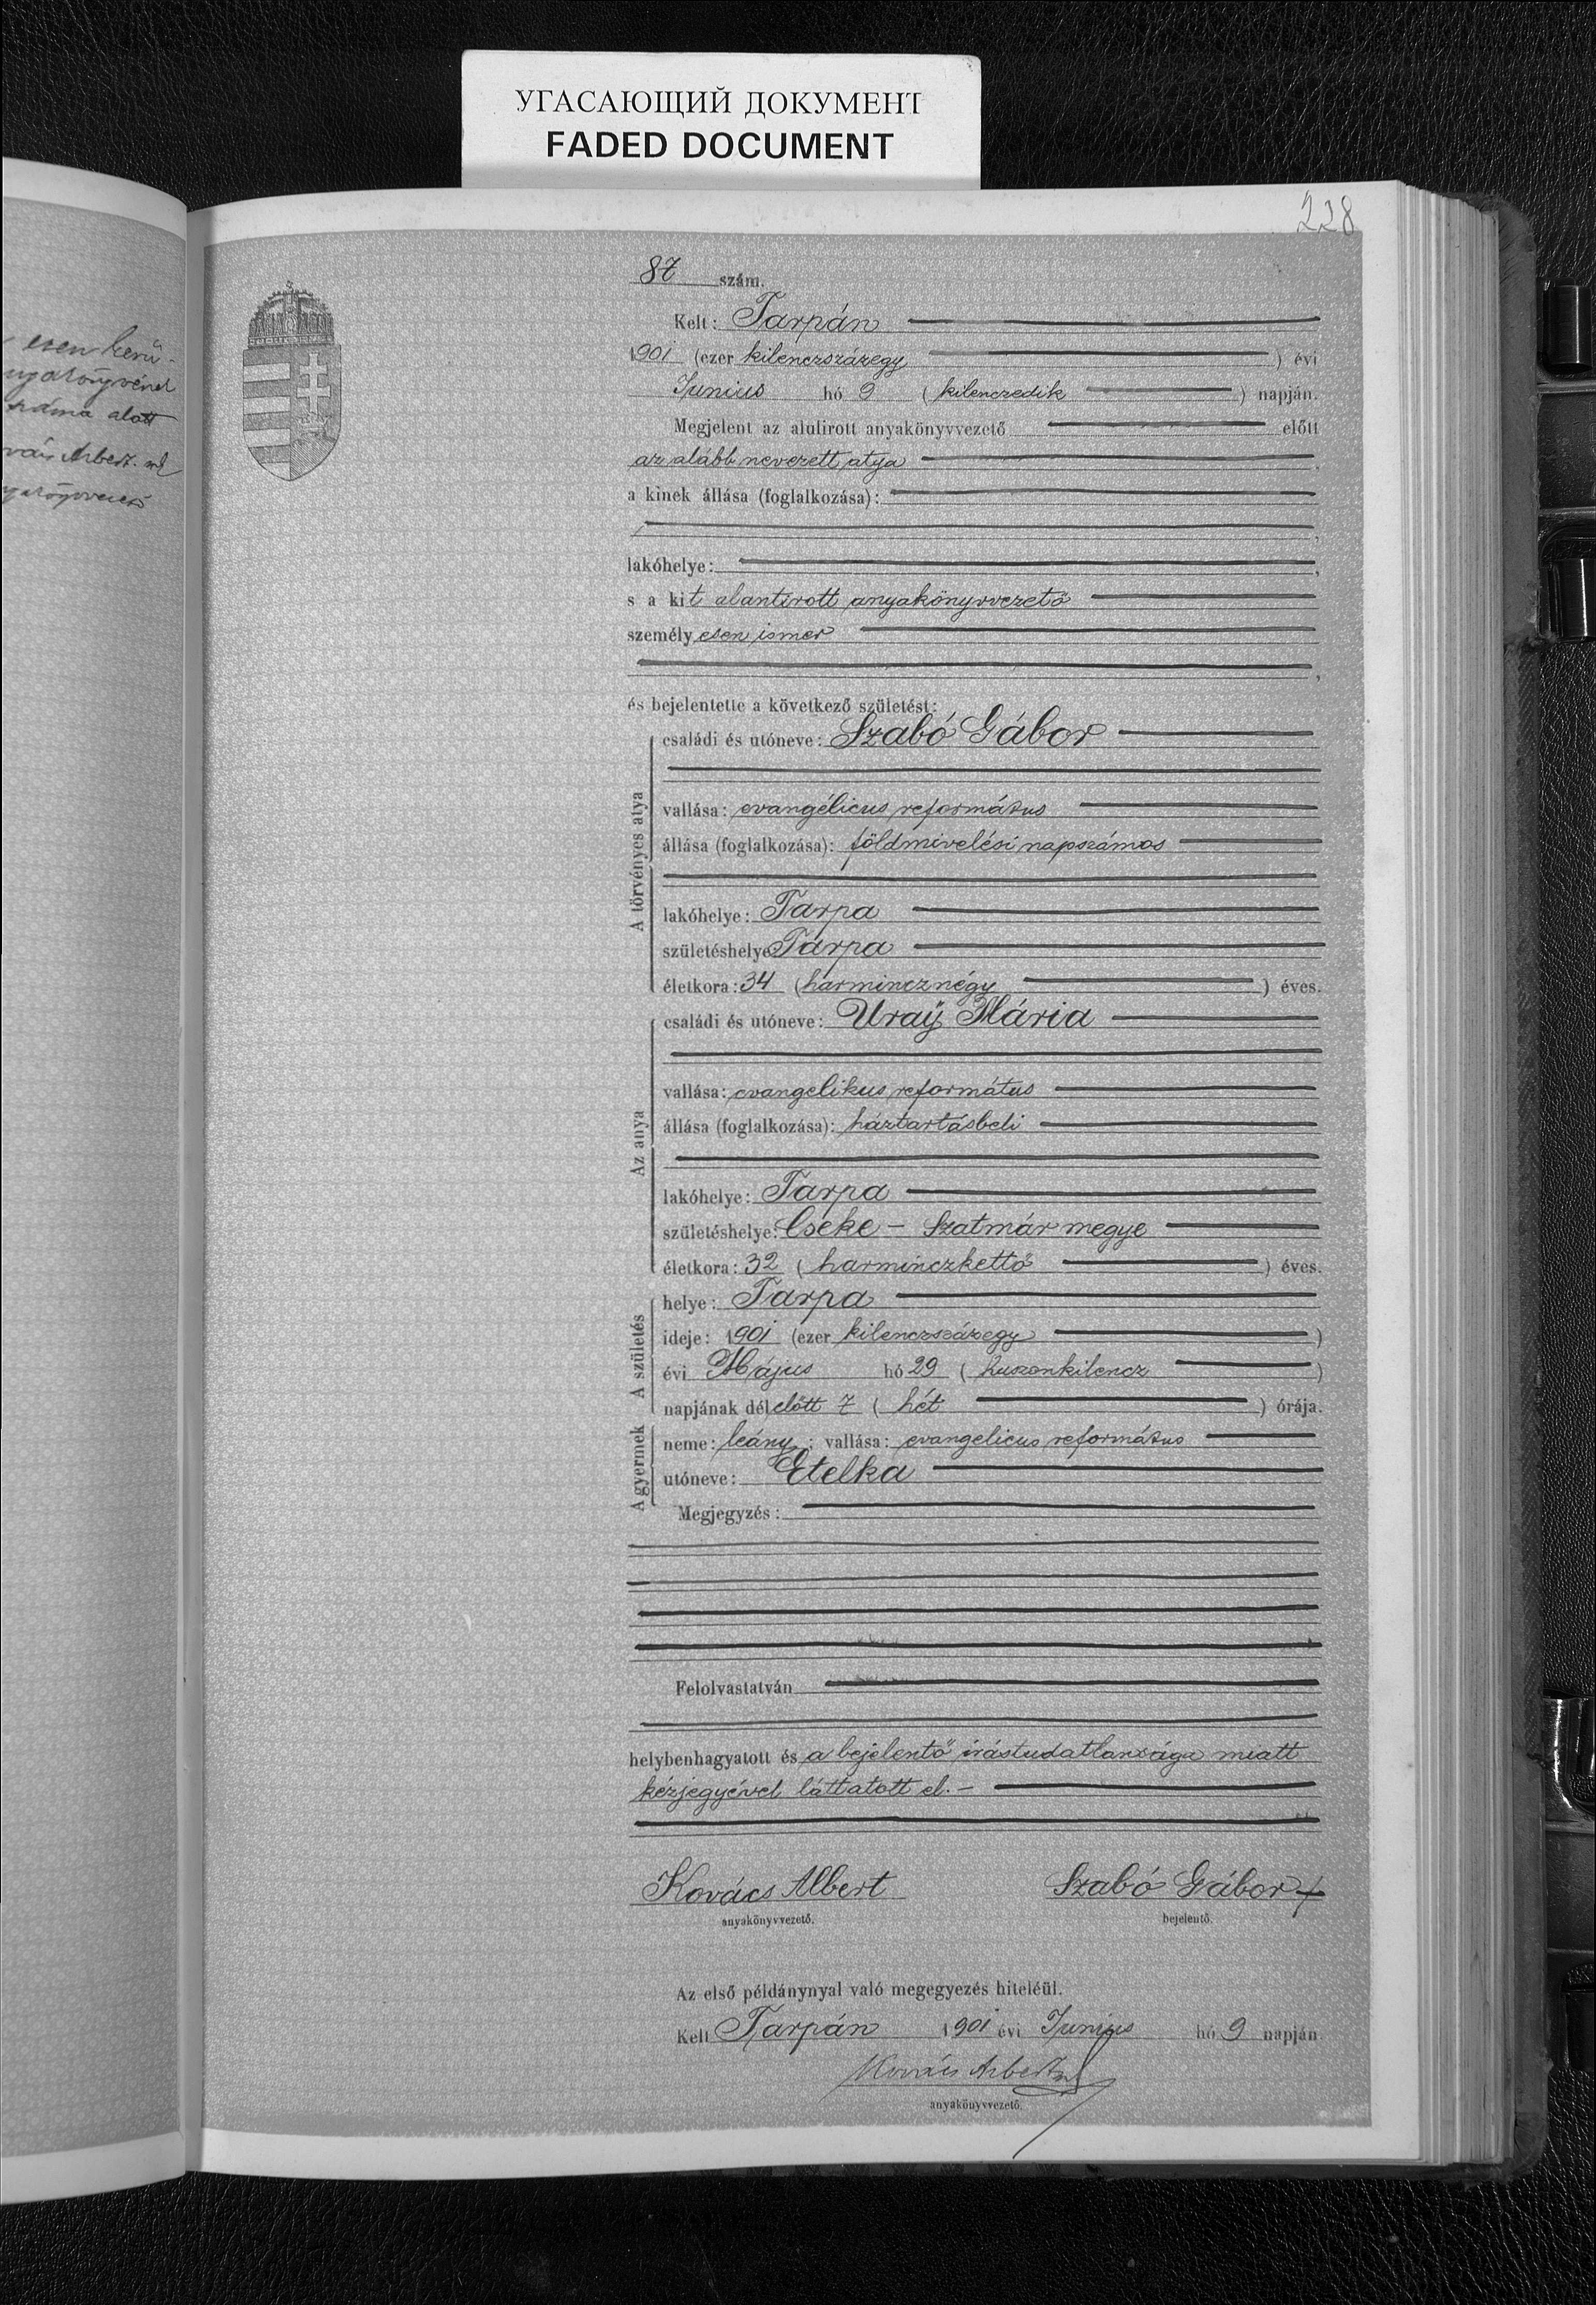 УГАСАЮЩИЙ ДОКУМЕНТ
FADED DOCUMENT
228
87 szám.
Kelt: Tarpán
1901 (ezer kilenczszázegy) évi
Junius hó 9 (kilenczedik) napján.
Megjelent az alulirott anyakönyvvezető előtt
az alább nevezett atya,
a kinek állása (foglalkozása):
lakóhelye:,
s a kit alantirott anyakönyvvezető
személyesen ismer
,
és bejelentette a következő születést:
A törvényes atya
családi és utóneve: Szabó Gábor
vallása: evangélicus református
állása (foglalkozása): földmivelési napszámos
lakóhelye: Tarpa
születéshelye: Tarpa
életkora: 34 (harmincznégy) éves.
Az anya
családi és utóneve: Uraÿ Mária
vallása: evangelikus református
állása (foglalkozása): háztartásbeli
lakóhelye: Tarpa
születéshelye: Cseke – Szatmár megye
életkora: 32 (harminczkettő) éves.
A születés
helye: Tarpa
ideje: 1901 (ezer kilenczszázegy)
évi Május hó 29 (huszonkilencz)
napjának délelőtt 7 (hét) órája.
A gyermek
neme: leány; vallása: evangelicus református
utóneve: Etelka
Megjegyzés:
Felolvastatván
helybenhagyatott és a bejelentő irástudatlansága miatt
kézjegyével láttatott el. –
Kovács Albert Szabó Gábor +
anyakönyvvezető. bejelentő.
Az első példánynyal való megegyezés hiteléül.
Kelt Tarpán 1901 évi Junius hó 9 napján
Kovács Albert
anyakönyvvezető.